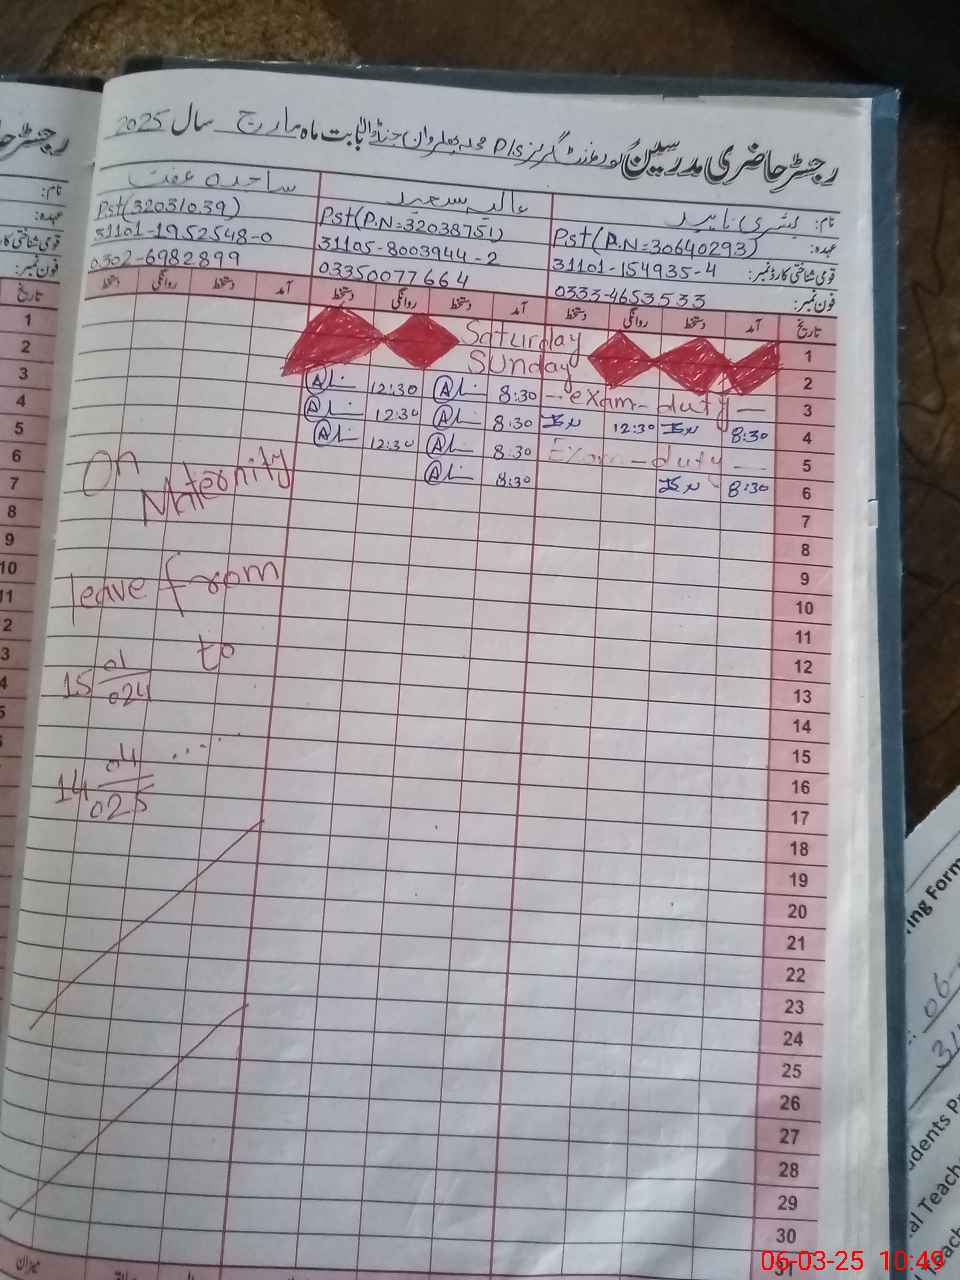 رجسٹر حاضری مدرسین گورنمنٹ گرلز P/S بابت ماہ مارچ سال 2025
نام: بشریٰ ناہید عالیہ سعید ساجدہ عفت
عہدہ: Pst(P.N=30640293) Pst(P.N=32038751) Pst(32031039)
قومی شناختی کارڈ نمبر: 31101-154935-4 31105-8003944-2 31101-1952548-0
فون نمبر: 0333-4653533 03350077664 0302-6982899
تاریخ آمد دستخط روانگی دستخط آمد دستخط روانگی دستخط آمد دستخط روانگی دستخط
1 Saturday
2 Sunday
3 - exam - duty - 8:30 12:30
4 8:30 12:30 8:30 12:30
5 Exam - duty - 8:30 12:30
6 8:30 8:30
7
8
9
10
11
12
13
14
15
16
17
18
19
20
21
22
23
24
25
26
27
28
29
30
31
On
Maternity
leave from
15 01/024 to
14 04/025 .....
میزان
رجسٹر
نام:
عہدہ:
فون نمبر:
تاریخ
1
2
3
4
5
6
7
8
9
10
11
2
3
4
5
ing Form
06-
31
udents
al Teach
06-03-25 10:49